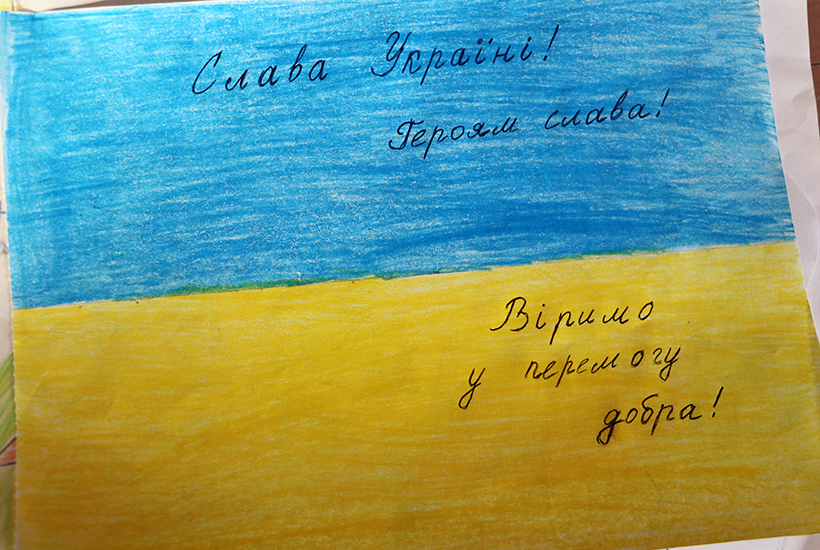 Слава Україні!
Героям слава!
Віримо
у перемогу
добра!